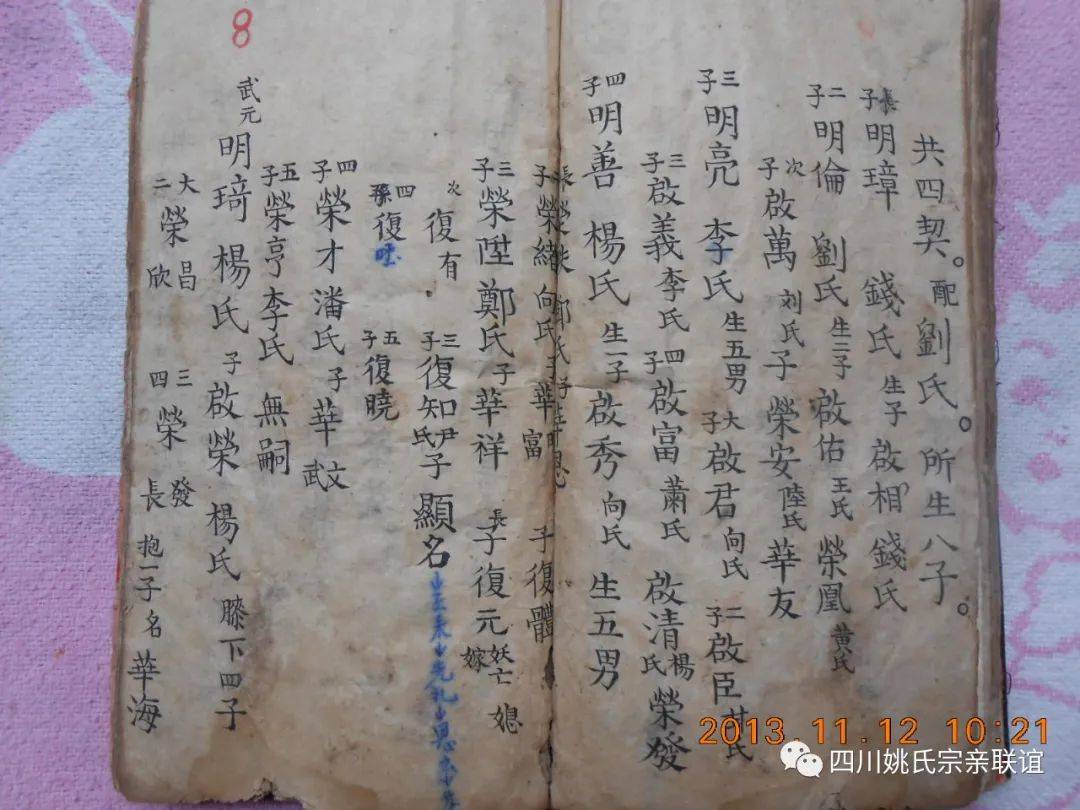 共四契。配劉氏。所生八子。
長子明璋 錢氏 生子啟相 錢氏
二子明倫 劉氏 生二子啟佑 王氏 榮凰 黃氏
次子啟萬 刘氏 子榮安 陸氏 華友
三子明亮 李氏 生五男 大子啟君 向氏 二子啟臣 氏
三子啟義 李氏 四子啟富 蕭氏 啟清 楊氏 榮發
四子明善 楊氏 生一子啟秀 向氏 生五男
長 榮 鄭氏 子華
子榮緒 向氏 子華富 子復體
三子榮陞 鄭氏 子華祥 長子復元 妖亡 媳嫁
次復有 三子復知 尹氏 子顯名
四孫復 五子復曉
四子榮才 潘氏 子華文武
五子榮亨 李氏 無嗣
武元明琦 楊氏 子啟榮 楊氏 膝下四子
大二榮昌欣 三四榮發長 抱一子名華海
8
2013.11.12 10:21
四川姚氏宗亲联谊